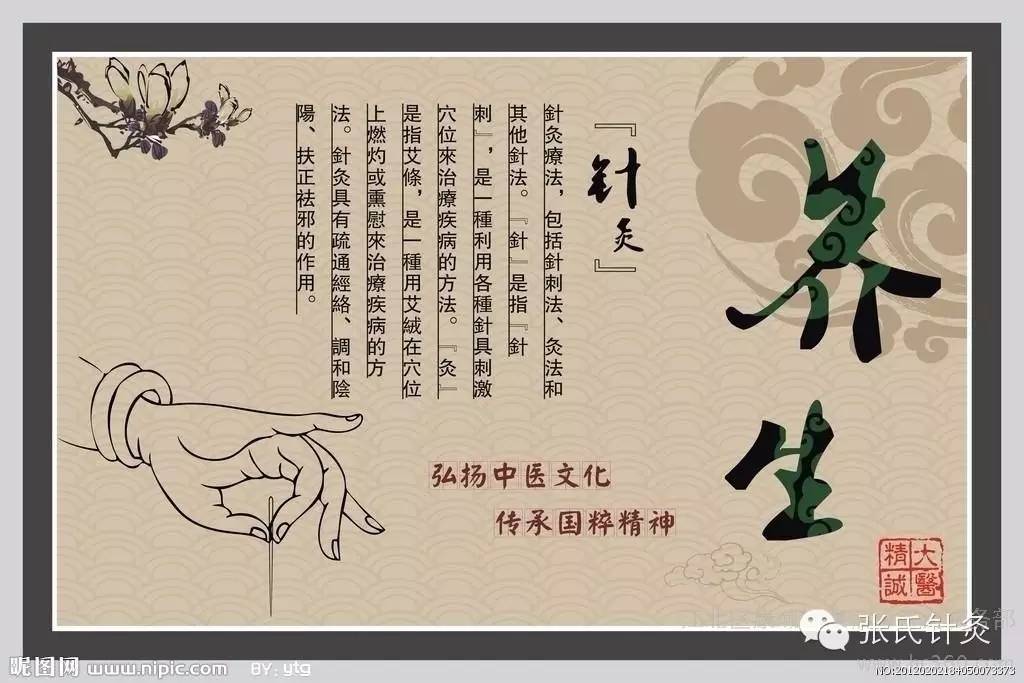 养生
『针灸』
針灸療法，包括針刺法、灸法和
其他針法。『針』是指『針
刺』，是一種利用各種針具刺激
穴位來治療疾病的方法。『灸』
是指艾條，是一種用艾絨在穴位
上燃灼或熏慰來治療疾病的方
法。針灸具有疏通經絡、調和陰
陽、扶正祛邪的作用。
弘扬中医文化
传承国粹精神
大醫
精誠
张氏针灸
昵图网 www.nipic.com BY:ytg
NO:20120202184050073373